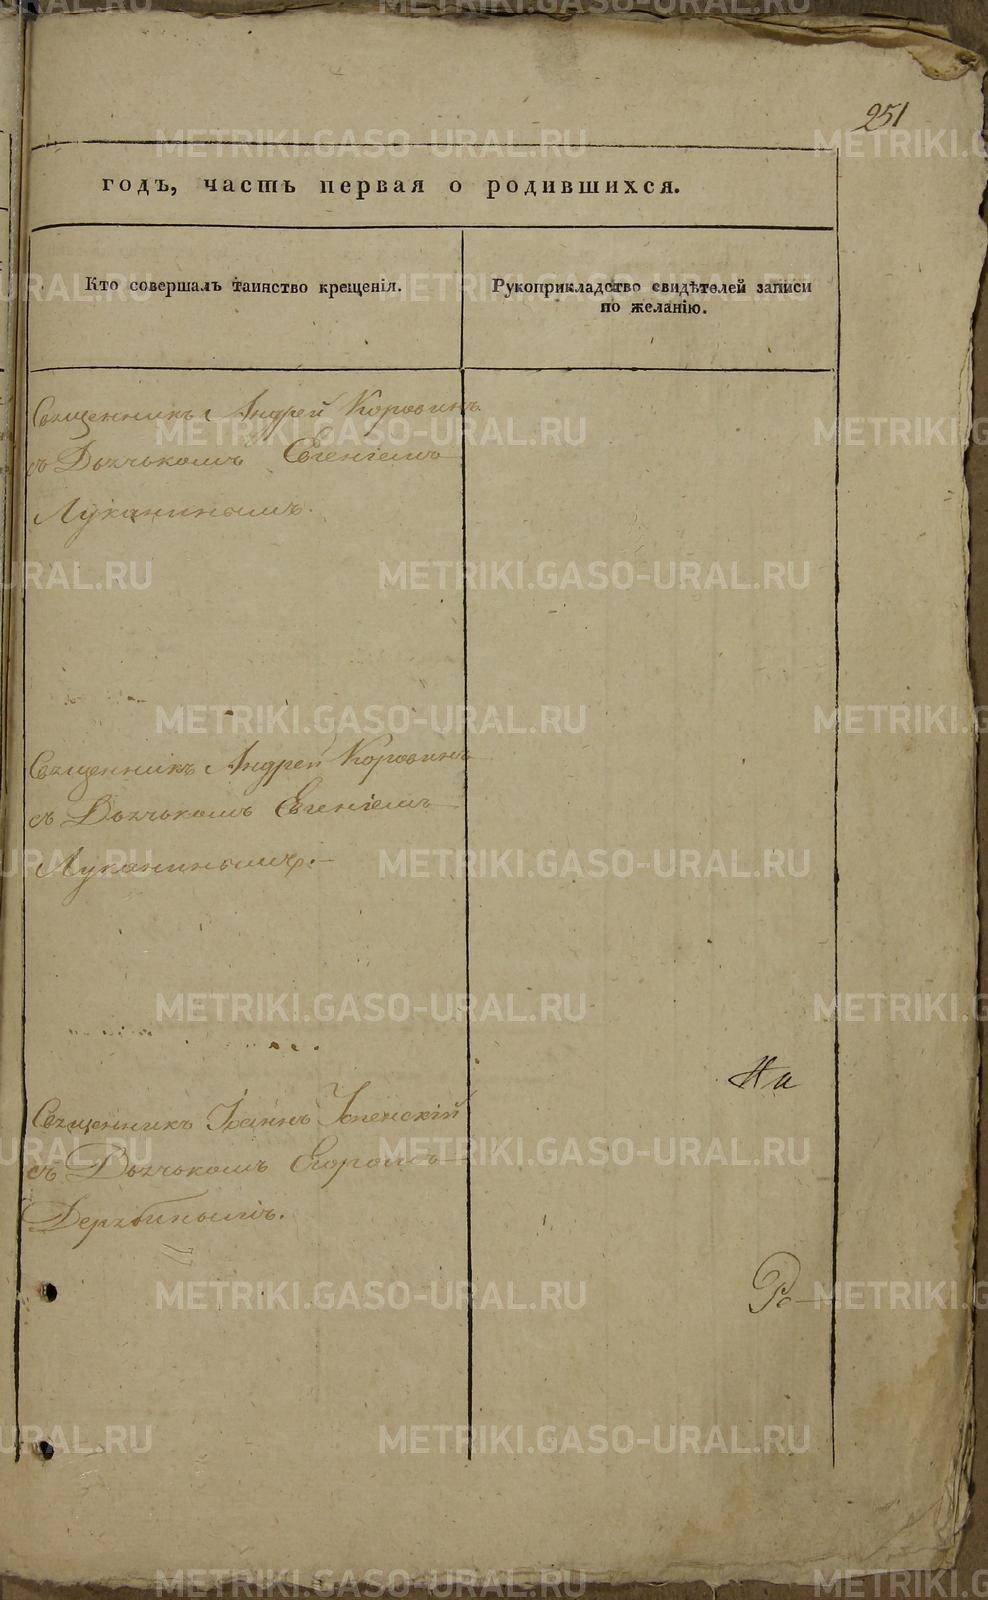 251
годъ, часть первая о родившихся.
Кто совершалъ таинство крещенія.
Рукоприкладство свидѣтелей записи
по желанію.
Священникъ Андрей Коровинъ
съ Дьячькомъ Евгеніемъ
Луканинымъ.
Священникъ Андрей Коровинъ
съ Дьячькомъ Евгеніемъ
Луканинымъ.
На
Священникъ Іоаннъ Успенскій
съ Дьячькомъ Егоромъ
Дерябинымъ.
Ро
METRIKI.GASO-URAL.RU